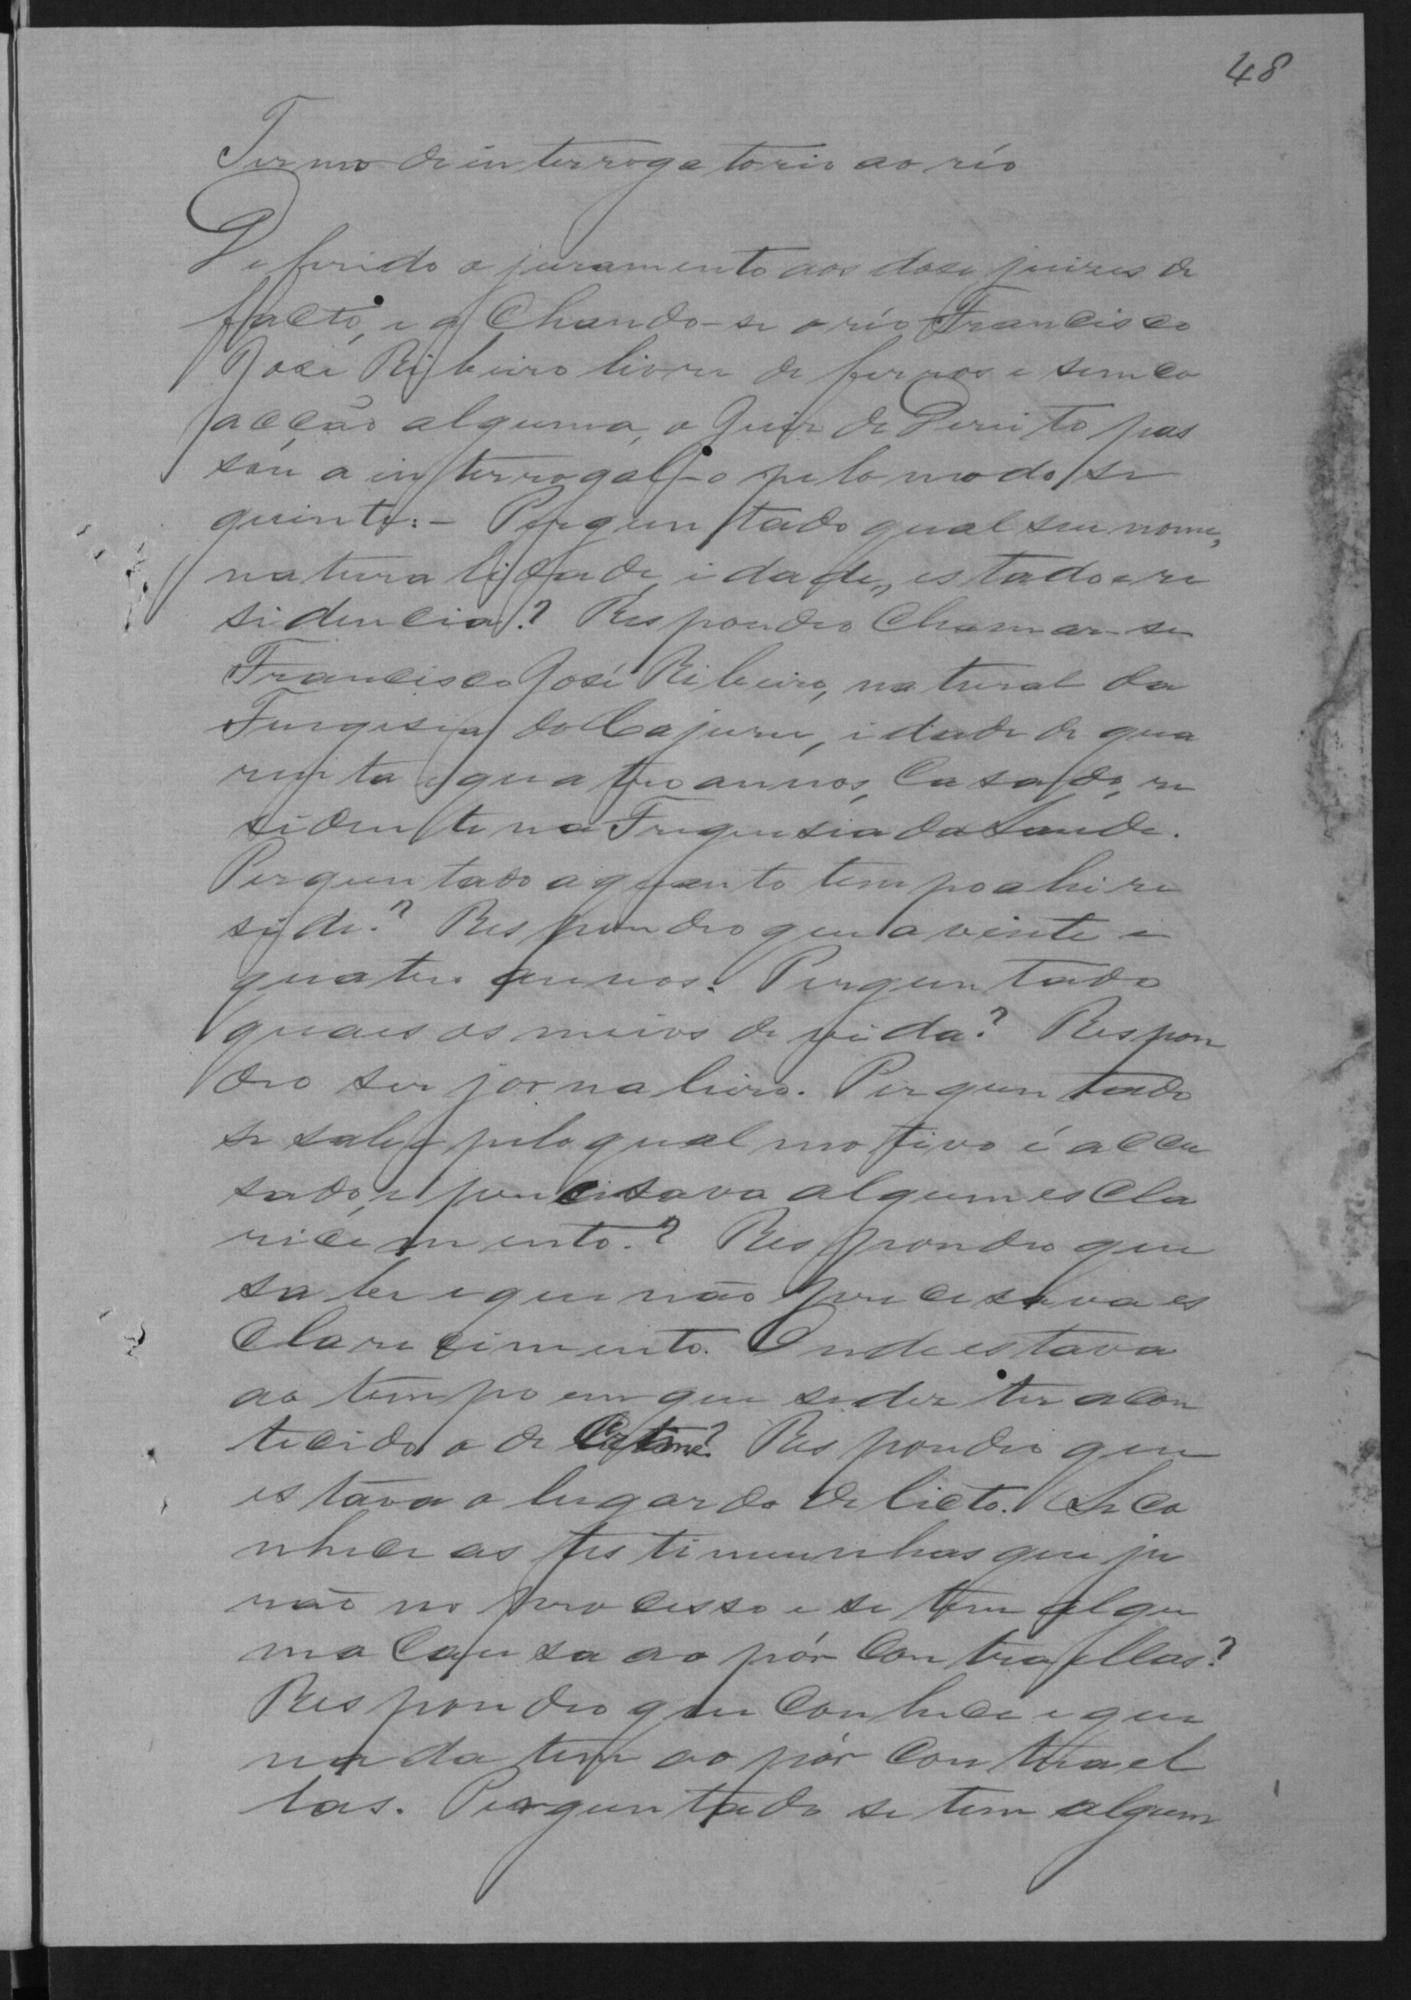 48
Termo de interrogatorio ao réo
Deferido o juramento aos dose juizes de
facto, e achando-se o réo Francisco
José Ribeiro livre de ferros e sem co
acção alguma, o Juiz de Direito pas
sou a interrogal-o pelo modo se
guinte: - Perguntado qual seu nome,
naturalidade, idade, estado e re
sidencia? Respondeo Chamar-se
Francisco José Ribeiro, natural da
Freguesia do Cajuru, idade de qua
renta e quatro annos, Casado, re
sidente na Freguesia da Saude.
Perguntado a quanto tempo ahi re
side? Respondeo que a vinte e
quatro annos. Perguntado
quaes os meios de vida? Respon
deo ser jornaleiro. Perguntado
se sabe pelo qual motivo é accu
sado, e precisava algum escla
recimento? Respondeo que
sabe e que não precisava es
clarecimento. Onde estava
ao tempo em que se diz ter acon
tecido o de Crime? Respondeo que
estava o lugar do delicto. Se co
nhece as testimunhas que ju
rão no processo e se tem algu
ma causa ao pór contra ellas?
Respondeo que conhece e que
nada tem ao pór contra el
las. Perguntado se tem algum